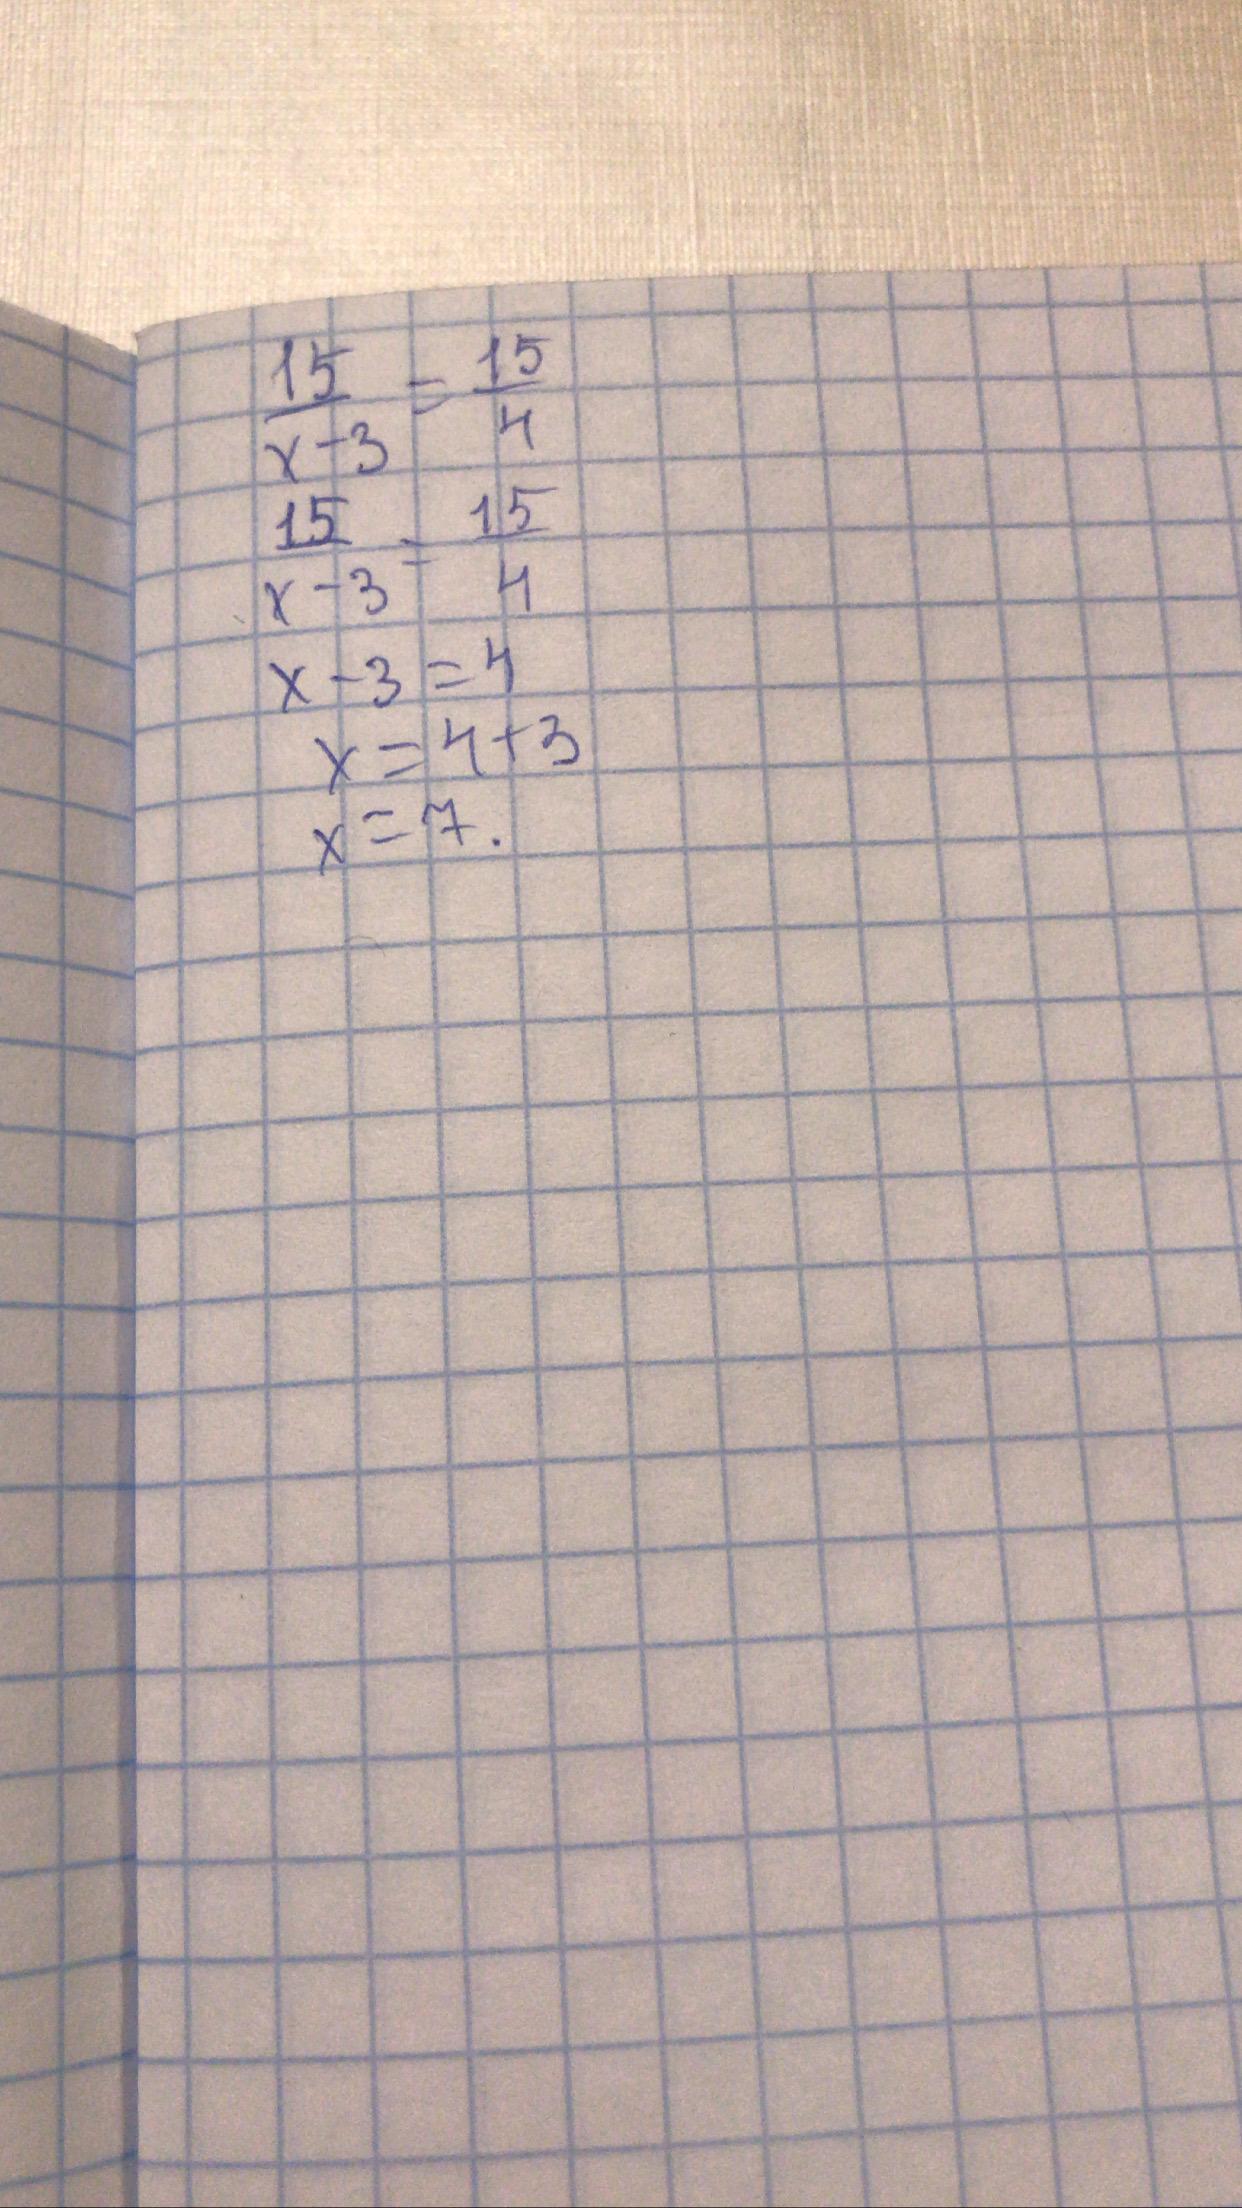 15/(x-3) = 15/4
15/(x-3) = 15/4
x-3=4
x=4+3
x=7.